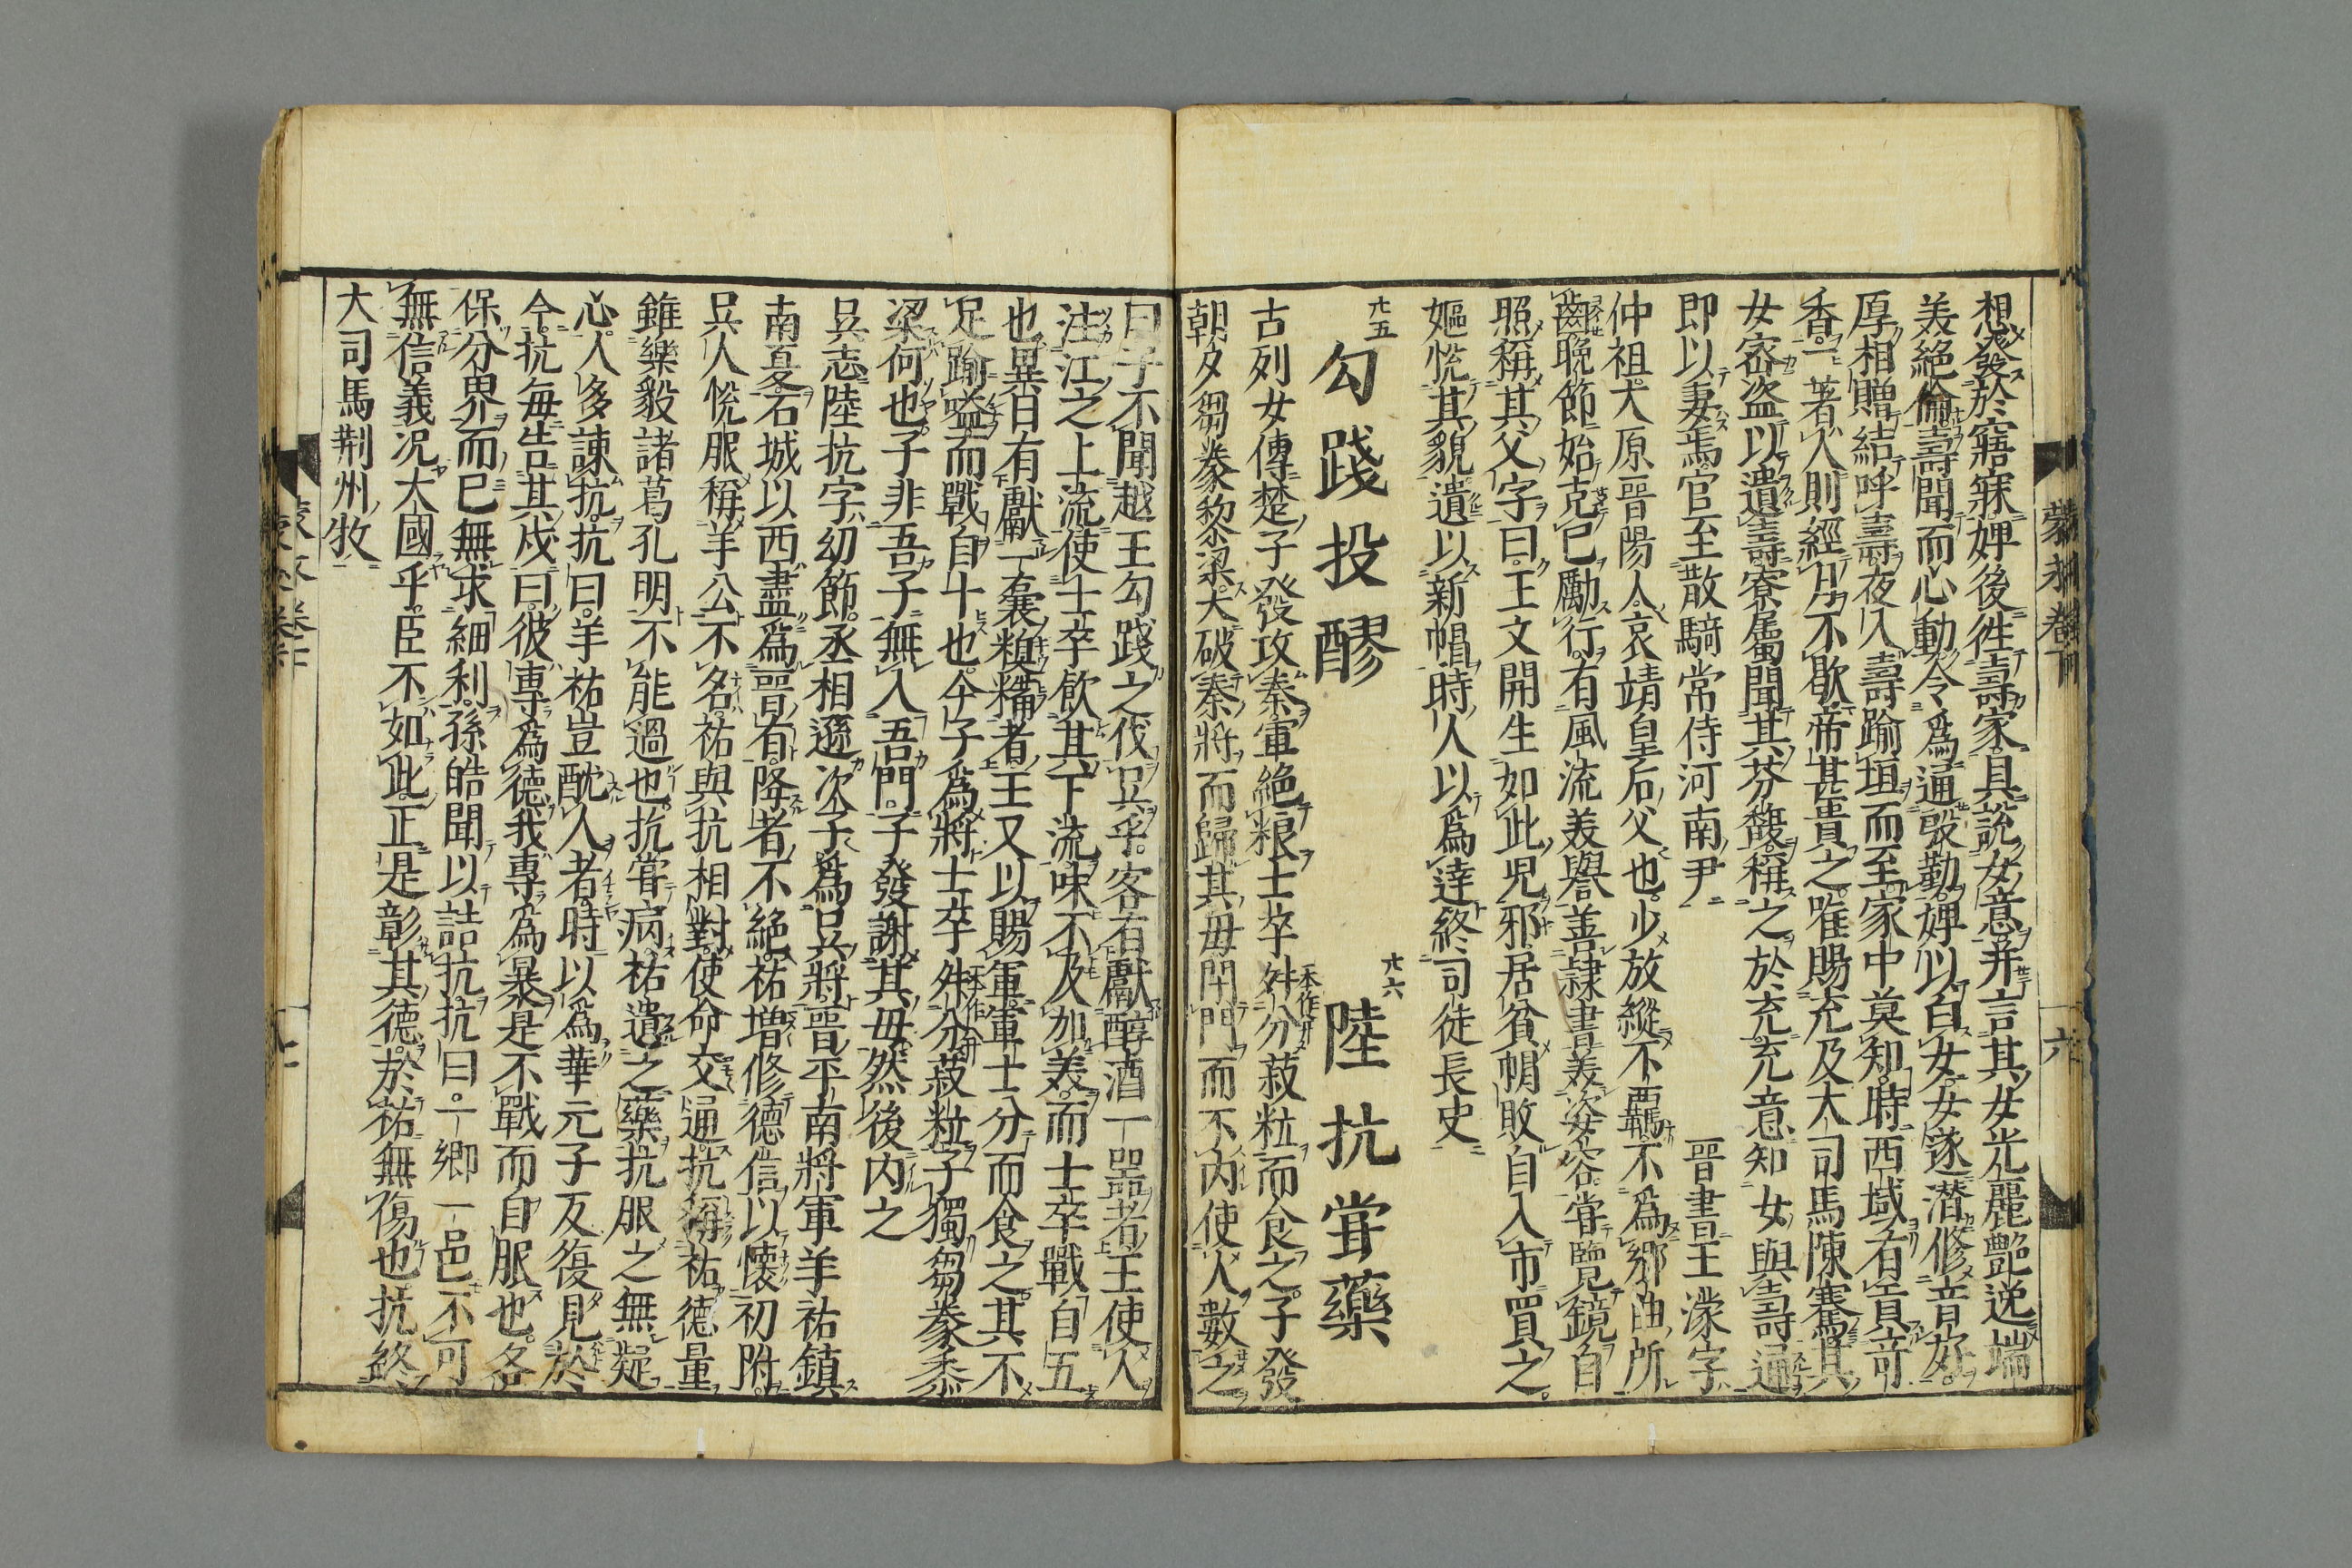 想發於寤寐婢後徃壽家具說女意并言其女光麗艶逸端
美絕倫壽聞而心動令爲通慇勤婢以白女女遂潜修音好
厚相贈結呼壽夜入壽踰垣而至家中莫知時西域有貢奇
香一著人則經月不歇帝甚貴之唯賜充及大司馬陳騫其
女密盗以遺壽寮屬聞其芬馥稱之於充充意知女與壽通
即以妻焉官至散騎常侍河南尹 晋書王濛字
仲祖大原晋陽人哀靖皇后父也少放縱不羈不爲郷曲所
齒晚節始克己勵行有風流美譽善隷書美姿容甞覽鏡自
照稱其父字曰王文開生如此兒邪居貧帽敗自入市買之
嫗恱其貌遺以新帽時人以爲達終司徒長史
勾踐投醪 陸抗甞藥
古列女傳楚子發攻秦軍絕粮士卒升分菽粒而食之子發
朝夕芻豢黎粱大破秦將而歸其毋閇門而不内使人數之
曰子不聞越王勾踐之伐㒵乎客有獻醇酒一噐者王使人
注江之上流使士卒飲其下流味不及加美而士卒戰自五
也異日有獻一嚢糗糒者王又以賜軍軍士分而食之其不
足踰嗌而戰自十也今子爲將士卒升分菽粒子獨芻豢黍
粱何也子非吾子無入吾門子發謝其毋然後内之
吳志陸抗字幼節丞相遜次子爲吳將晋平南將軍羊祐鎮
南夏石城以西盡爲晋有降者不絕祐増修德信以懷初附
吳人恱服稱羊公不名祐與抗相對使命交通抗稱祐德量
雖樂毅諸葛孔明不能過也抗甞病祐遺之藥抗服之無疑
心人多諌抗抗曰羊祐豈酖人者時以爲華元子反復見於
今抗毎告其戍曰彼專爲德我專爲暴是不戰而自服也各
保分界而已無求細利孫皓聞以詰抗抗曰一郷一邑不可
無信義况大國乎臣不如此正是彰其德於祐無傷也抗終
大司馬荆州牧